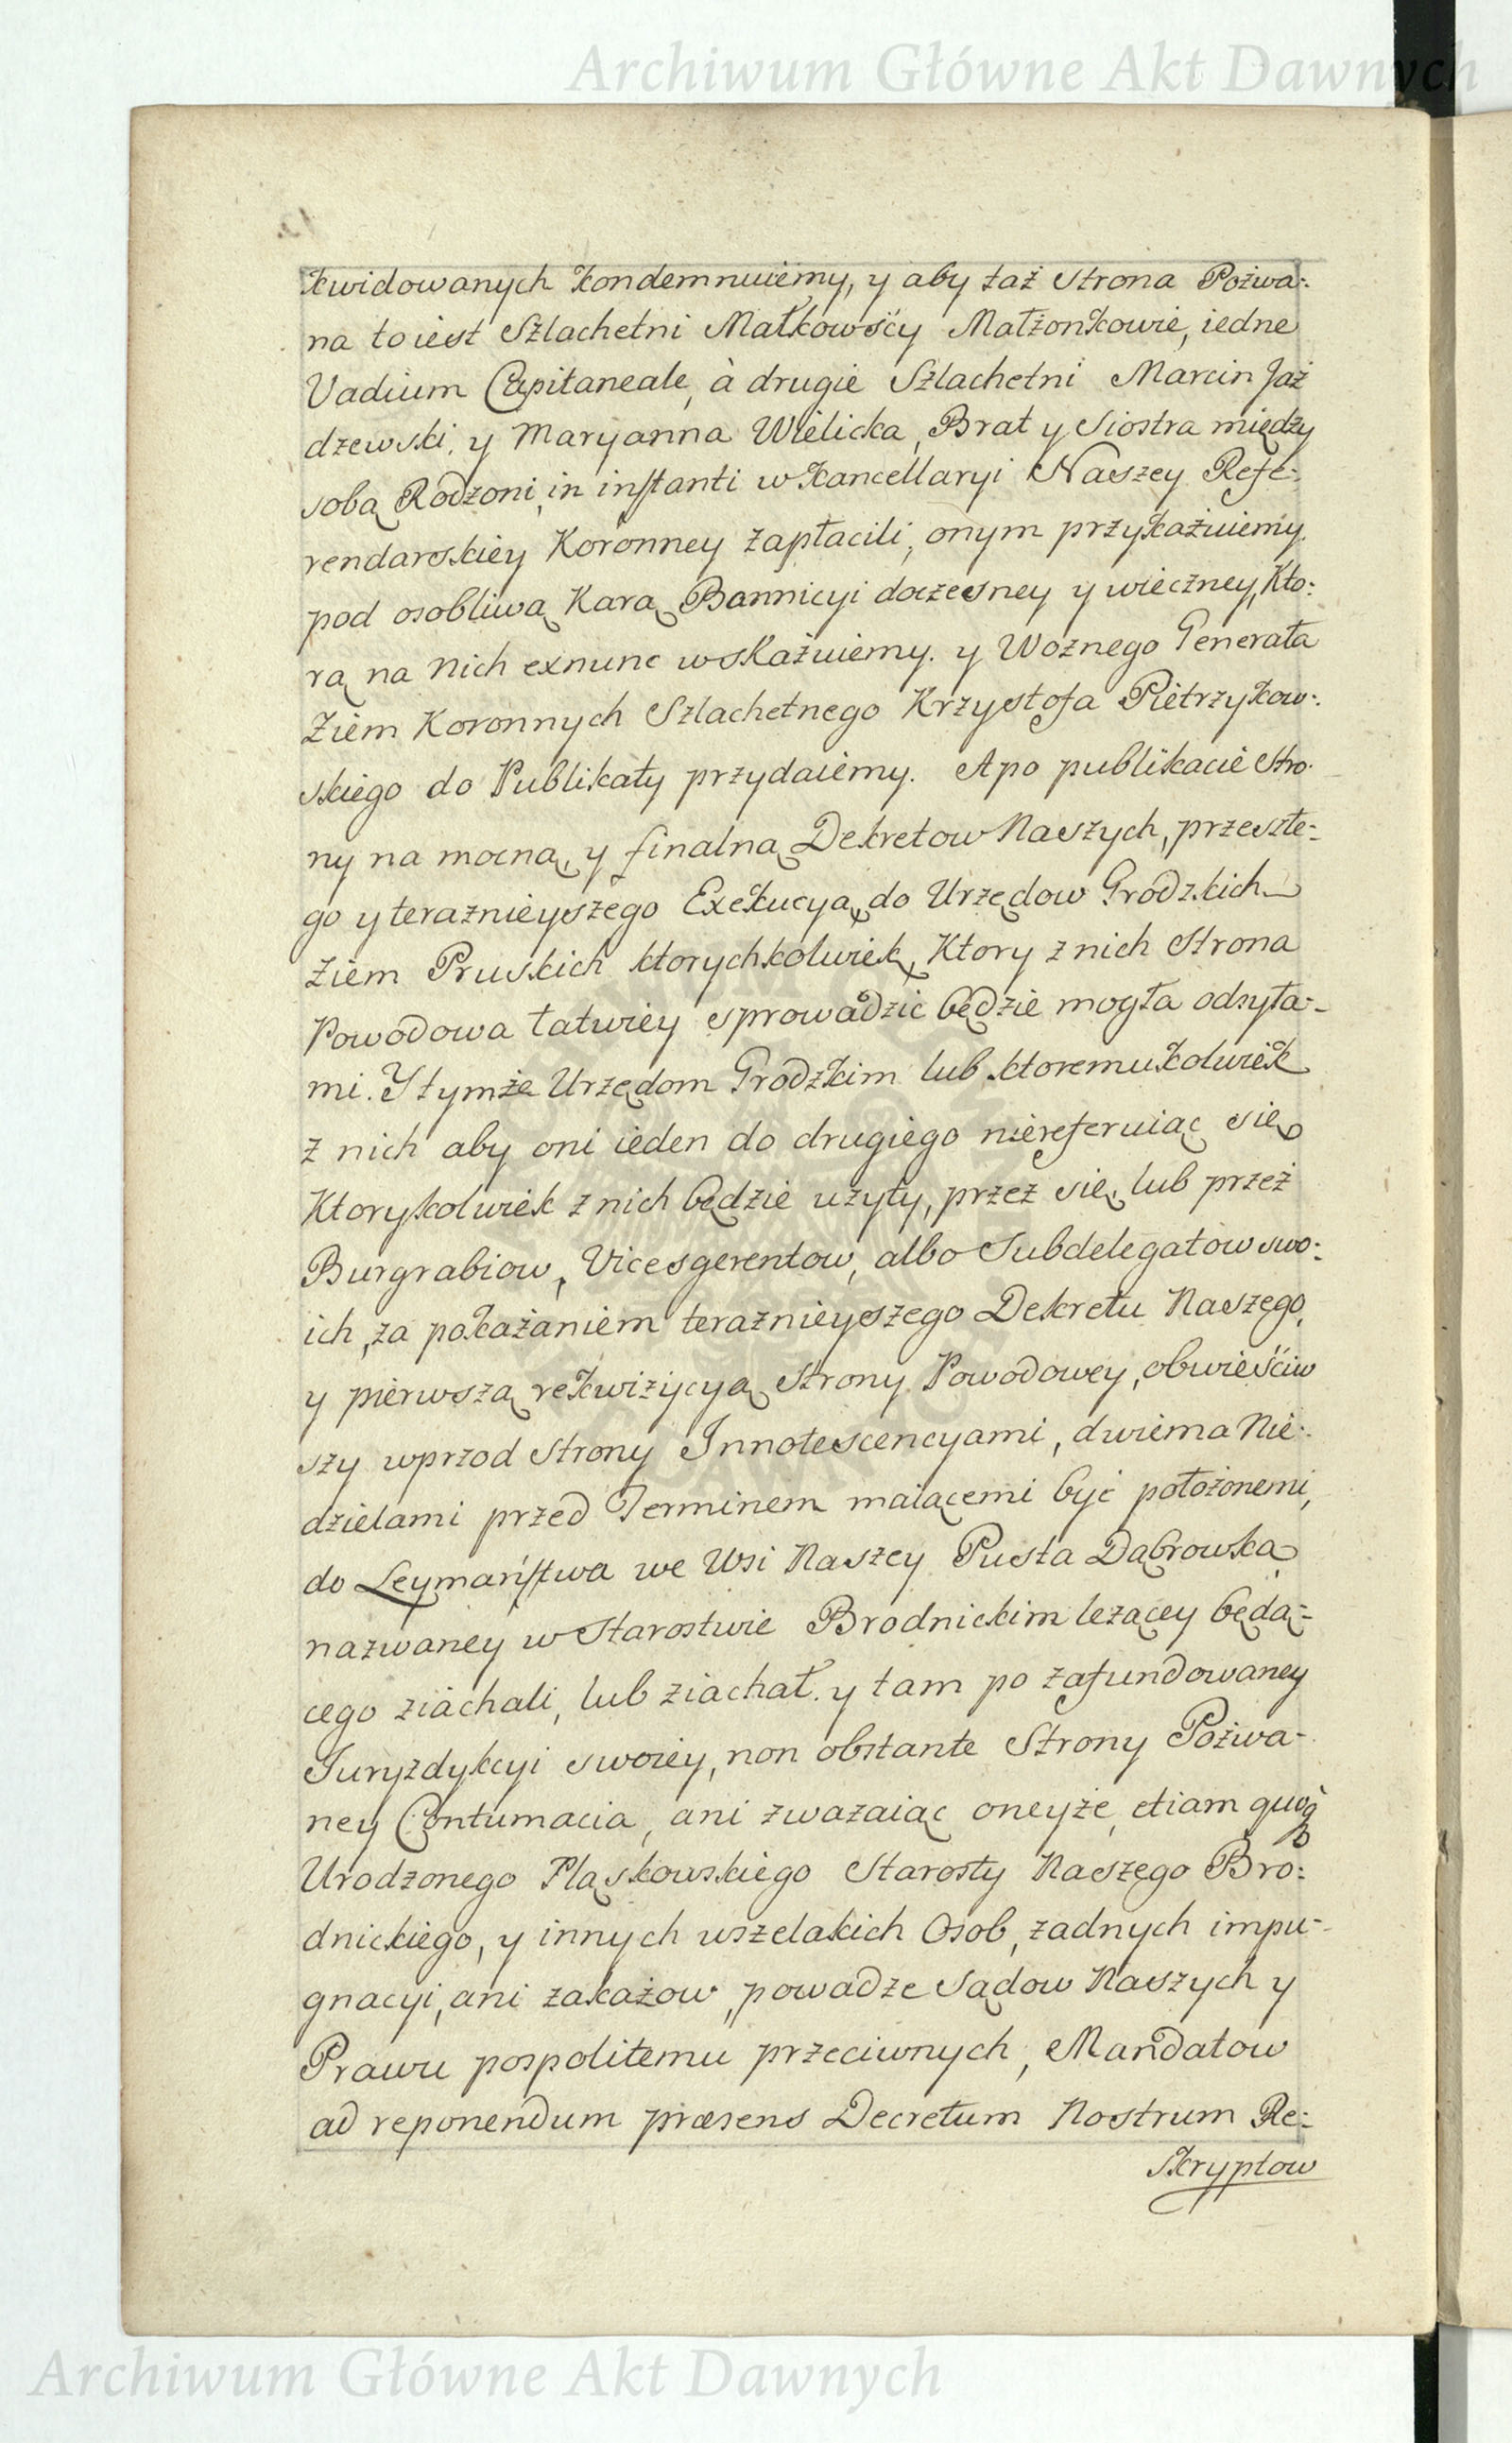 Archiwum Główne Akt Dawnych
kwidowanych kondemnuiemy, y aby taż Strona Pożwa:
na to iest Szlachetni Małkowśćy Małżonkowie, iedne
Vadium Capitaneale, à drugie Szlachetni Marcin Jaż
dzewski, y Maryanna Wielicka, Brat y Siostra między
sobą Rodzoni, in instanti w Kancellaryi Naszey Refe:
rendarskiey Koronney zapłacili, onym przykażuiemy.
pod osobliwą Karą Bannicyi doczesney y wieczney, Kto:
rą na nich exnunc wskażuiemy. y Woznego Generała
Ziem Koronnych Szlachetnego Krzysztofa Pietrzykow:
skiego do Publikaty przydaiemy. A po publikacie Stro:
ny na mocną, y finalną Dekretow Naszych, przeszłe:
go y teraznieyszego Exekucyą, do Urzędow Grodzkich
Ziem Pruskich ktorychkolwiek, Ktory z nich Strona
Powodowa łatwiey sprowadzić będzie mogła odsyła:
mi. Y tymże Urzędom Grodzkim lub ktoremukolwiek
z nich aby oni ieden do drugiego niereferuiąc się
Ktorykolwiek z nich będzie użyty, przez się, lub przeż
Burgrabiow, Vicesgerentow, albo Subdelegatow swo:
ich, za pokażaniem teraznieyszego Dekretu Naszego,
y pierwszą rekwiżycyą Strony Powodowey, obwieśćiw
szy wprzod Strony Innotescencyami, dwiema Nie:
dzielami przed Terminem maiącemi być położonemi,
do Leymaństwa we Wsi Naszey Pusta Dąbrowka
nazwaney w Starostwie Brodnickim leżącey będą:
cego ziachali, lub ziachał. y tam po zafundowaney
Juryzdykcyi swoiey, non obstante Strony Pożwa:
ney Contumacia, ani zważaiąc oneyże, etiam quoq
Urodzonego Pląskowskiego Starosty Naszego Bro:
dnickiego, y innych wszelakich Osob, żadnych impu:
gnacyi, ani zakażow, powadze Sądow Naszych y
Prawu pospolitemu przeciwnych, Mandatow
ad reponendum præsens Decretum Nostrum Re:
skryptow
Archiwum Główne Akt Dawnych